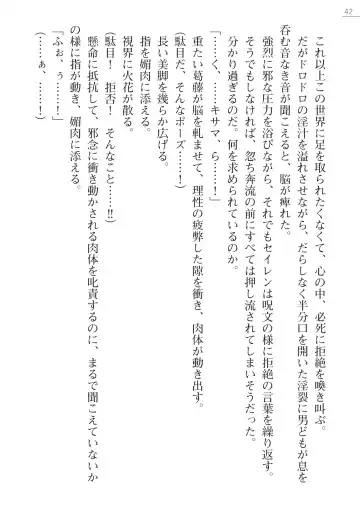 42
　これ以上この世界に足を取られたくなくて、心の中、必死に拒絶を喚き叫ぶ。
　だがドロドロの淫汁を溢れさせながら、だらしなく半分口を開いた淫裂に男どもが息を
呑む音なき音が聞こえると、脳が痺れた。
　強烈に邪な圧力を浴びながら、それでもセイレンは呪文の様に拒絶の言葉を繰り返す。
　そうでもしなければ、忽ち奔流の前にすべては押し流されてしまいそうだった。
　分かり過ぎるのだ。何を求められているのか。
「……く、キサマ、ら……！」
　重たい葛藤が脳を軋ませて、理性の疲弊した隙を衝き、肉体が動き出す。
（駄目だ、そんなポーズ……！）
　長い美脚を幾らか広げる。
　指を媚肉に添える。
　視界に火花が散る。
（駄目！　拒否！　そんなこと……!!）
　懸命に抵抗して、邪念に衝き動かされる肉体を叱責するのに、まるで聞こえていないか
の様に指が動き、媚肉に添える。
「ふぉ、ぅ……！」
（……ぁ、……！）